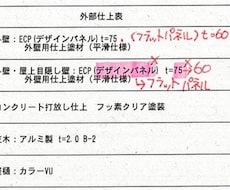 外部仕上表
壁：ECP(デザインパネル) t=75 , (フラットパネル) t=60
外壁用仕上塗材（平滑仕様）
・屋上目隠し壁：ECP(デザインパネル) t=75→60
外壁用仕上塗材（平滑仕様） →フラットパネル
コンクリート打放し仕上 フッ素クリア塗装
木：アルミ製 t=2.0 B-2
樋：カラーVU